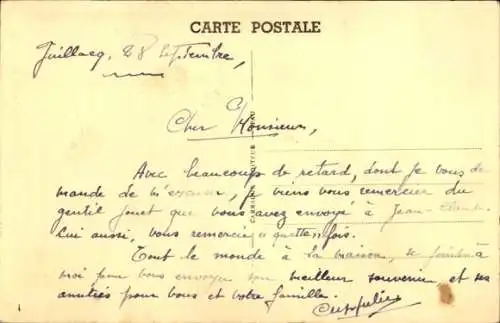 CARTE POSTALE
Juillacq, 28 septembre,
Cher Monsieur,
Avec beaucoup de retard, dont je vous de
mande de m'excuser, je viens vous remercier du
gentil jouet que vous avez envoyé à Jean-Claude.
Lui aussi, vous remercie
Tout le monde à la maison, se joint à
moi pour vous envoyer son meilleur souvenir, et ses
amitiés pour vous et votre famille.